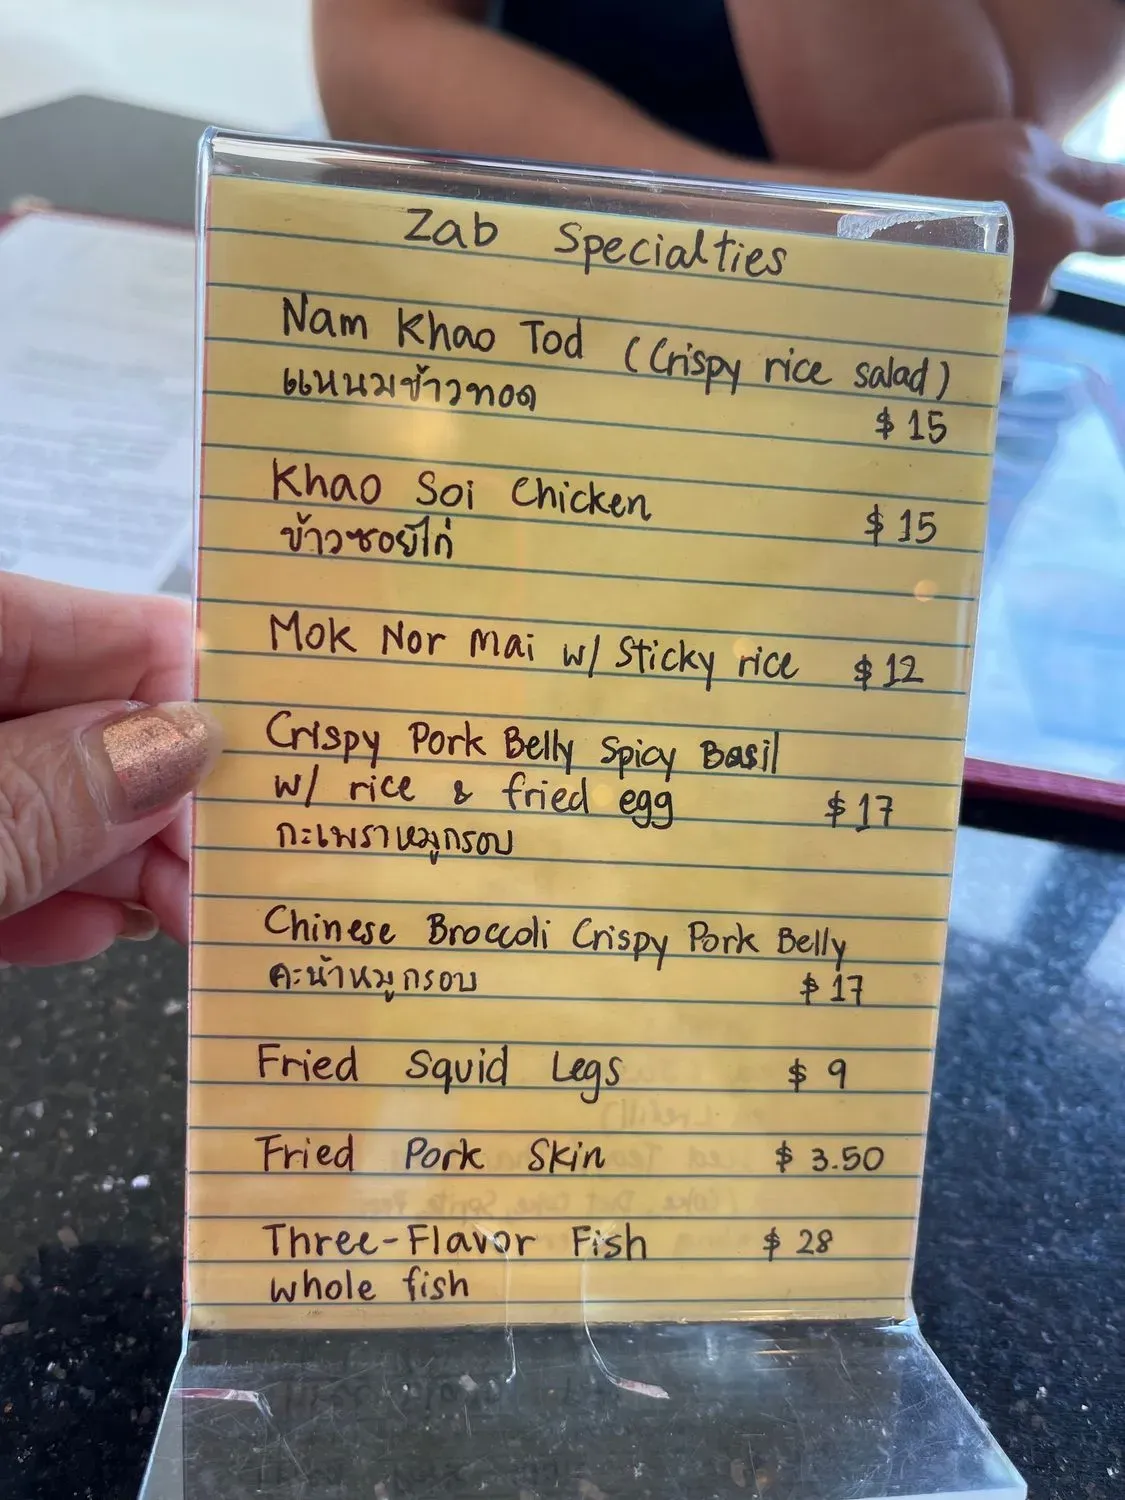 Zab Specialties
Nam Khao Tod (Crispy rice salad)
แหนมข้าวทอด
$ 15
Khao Soi Chicken
$ 15
ข้าวซอยไก่
Mok Nor Mai w/ Sticky rice $ 12
Crispy Pork Belly Spicy Basil
w/ rice & fried egg $ 17
กะเพราหมูกรอบ
Chinese Broccoli Crispy Pork Belly
คะน้าหมูกรอบ $ 17
Fried Squid Legs $ 9
Fried Pork Skin $ 3.50
Three-Flavor Fish $ 28
whole fish